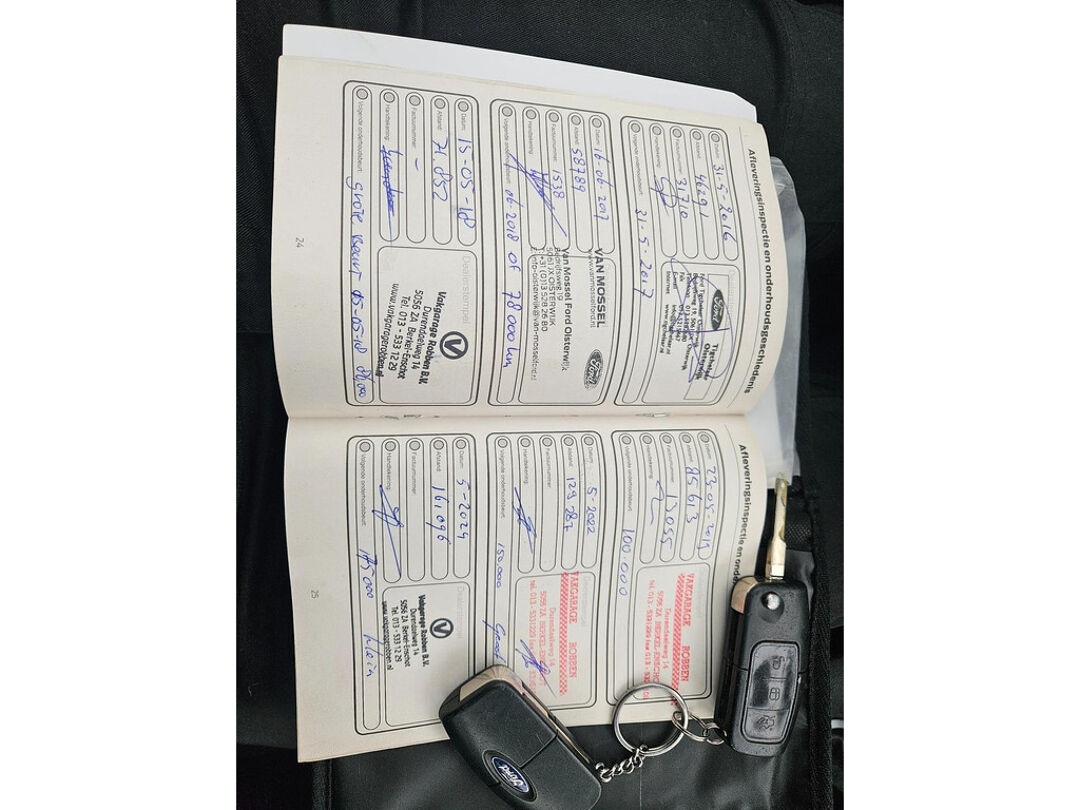 Afleveringsinspectie en onderhoudsgeschiedenis
Datum: 31-5-2016
Afstand: 46291
Factuurnummer: 31710
Handtekening:
Volgende onderhoudsbeurt: 31-5-2017
Ford
Tigchelaar
Oisterwijk
Datum: 16-06-2017
Afstand: 58789
Factuurnummer: 1538
Handtekening:
Volgende onderhoudsbeurt: 06-2018 of 78000 km
VAN MOSSEL
www.vanmosselford.nl
Ford
Van Mossel Ford Oisterwijk
Bedrijfsweg 19
5061 JX OISTERWIJK
T: +31 (0)13 528 26 80
E: info-oisterwijk@van-mosselford.nl
Datum: 15-05-18
Afstand: 71.852
Factuurnummer: -
Handtekening:
Volgende onderhoudsbeurt: grote beurt
Dealerstempel
Vakgarage Robben B.V.
Durendaelweg 14
5056 ZA Berkel-Enschot
Tel. 013 - 533 12 29
www.vakgaragerobben.nl
24
Afleveringsinspectie en onder
Datum: 23-05-2019
Afstand: 85613
Factuurnummer:
Handtekening:
Volgende onderhoudsbeurt: 100.000
VAKGARAGE ROBBEN
Durendaelweg 14
5056 ZA BERKEL-ENSCHOT
tel. 013-5331229
Datum: 5-2022
Afstand: 129 287
Factuurnummer:
Handtekening:
Volgende onderhoudsbeurt: 150.000 Groot
VAKGARAGE ROBBEN
Durendaelweg 14
5056 ZA BERKEL-ENSCHOT
tel. 013-5331229
Datum: 5-2024
Afstand: 161096
Factuurnummer:
Handtekening:
Volgende onderhoudsbeurt: 175000 klein
Dealerstempel
Vakgarage Robben B.V.
Durendaelweg 14
5056 ZA Berkel-Enschot
Tel. 013 - 533 12 29
www.vakgaragerobben.nl
25
Ford